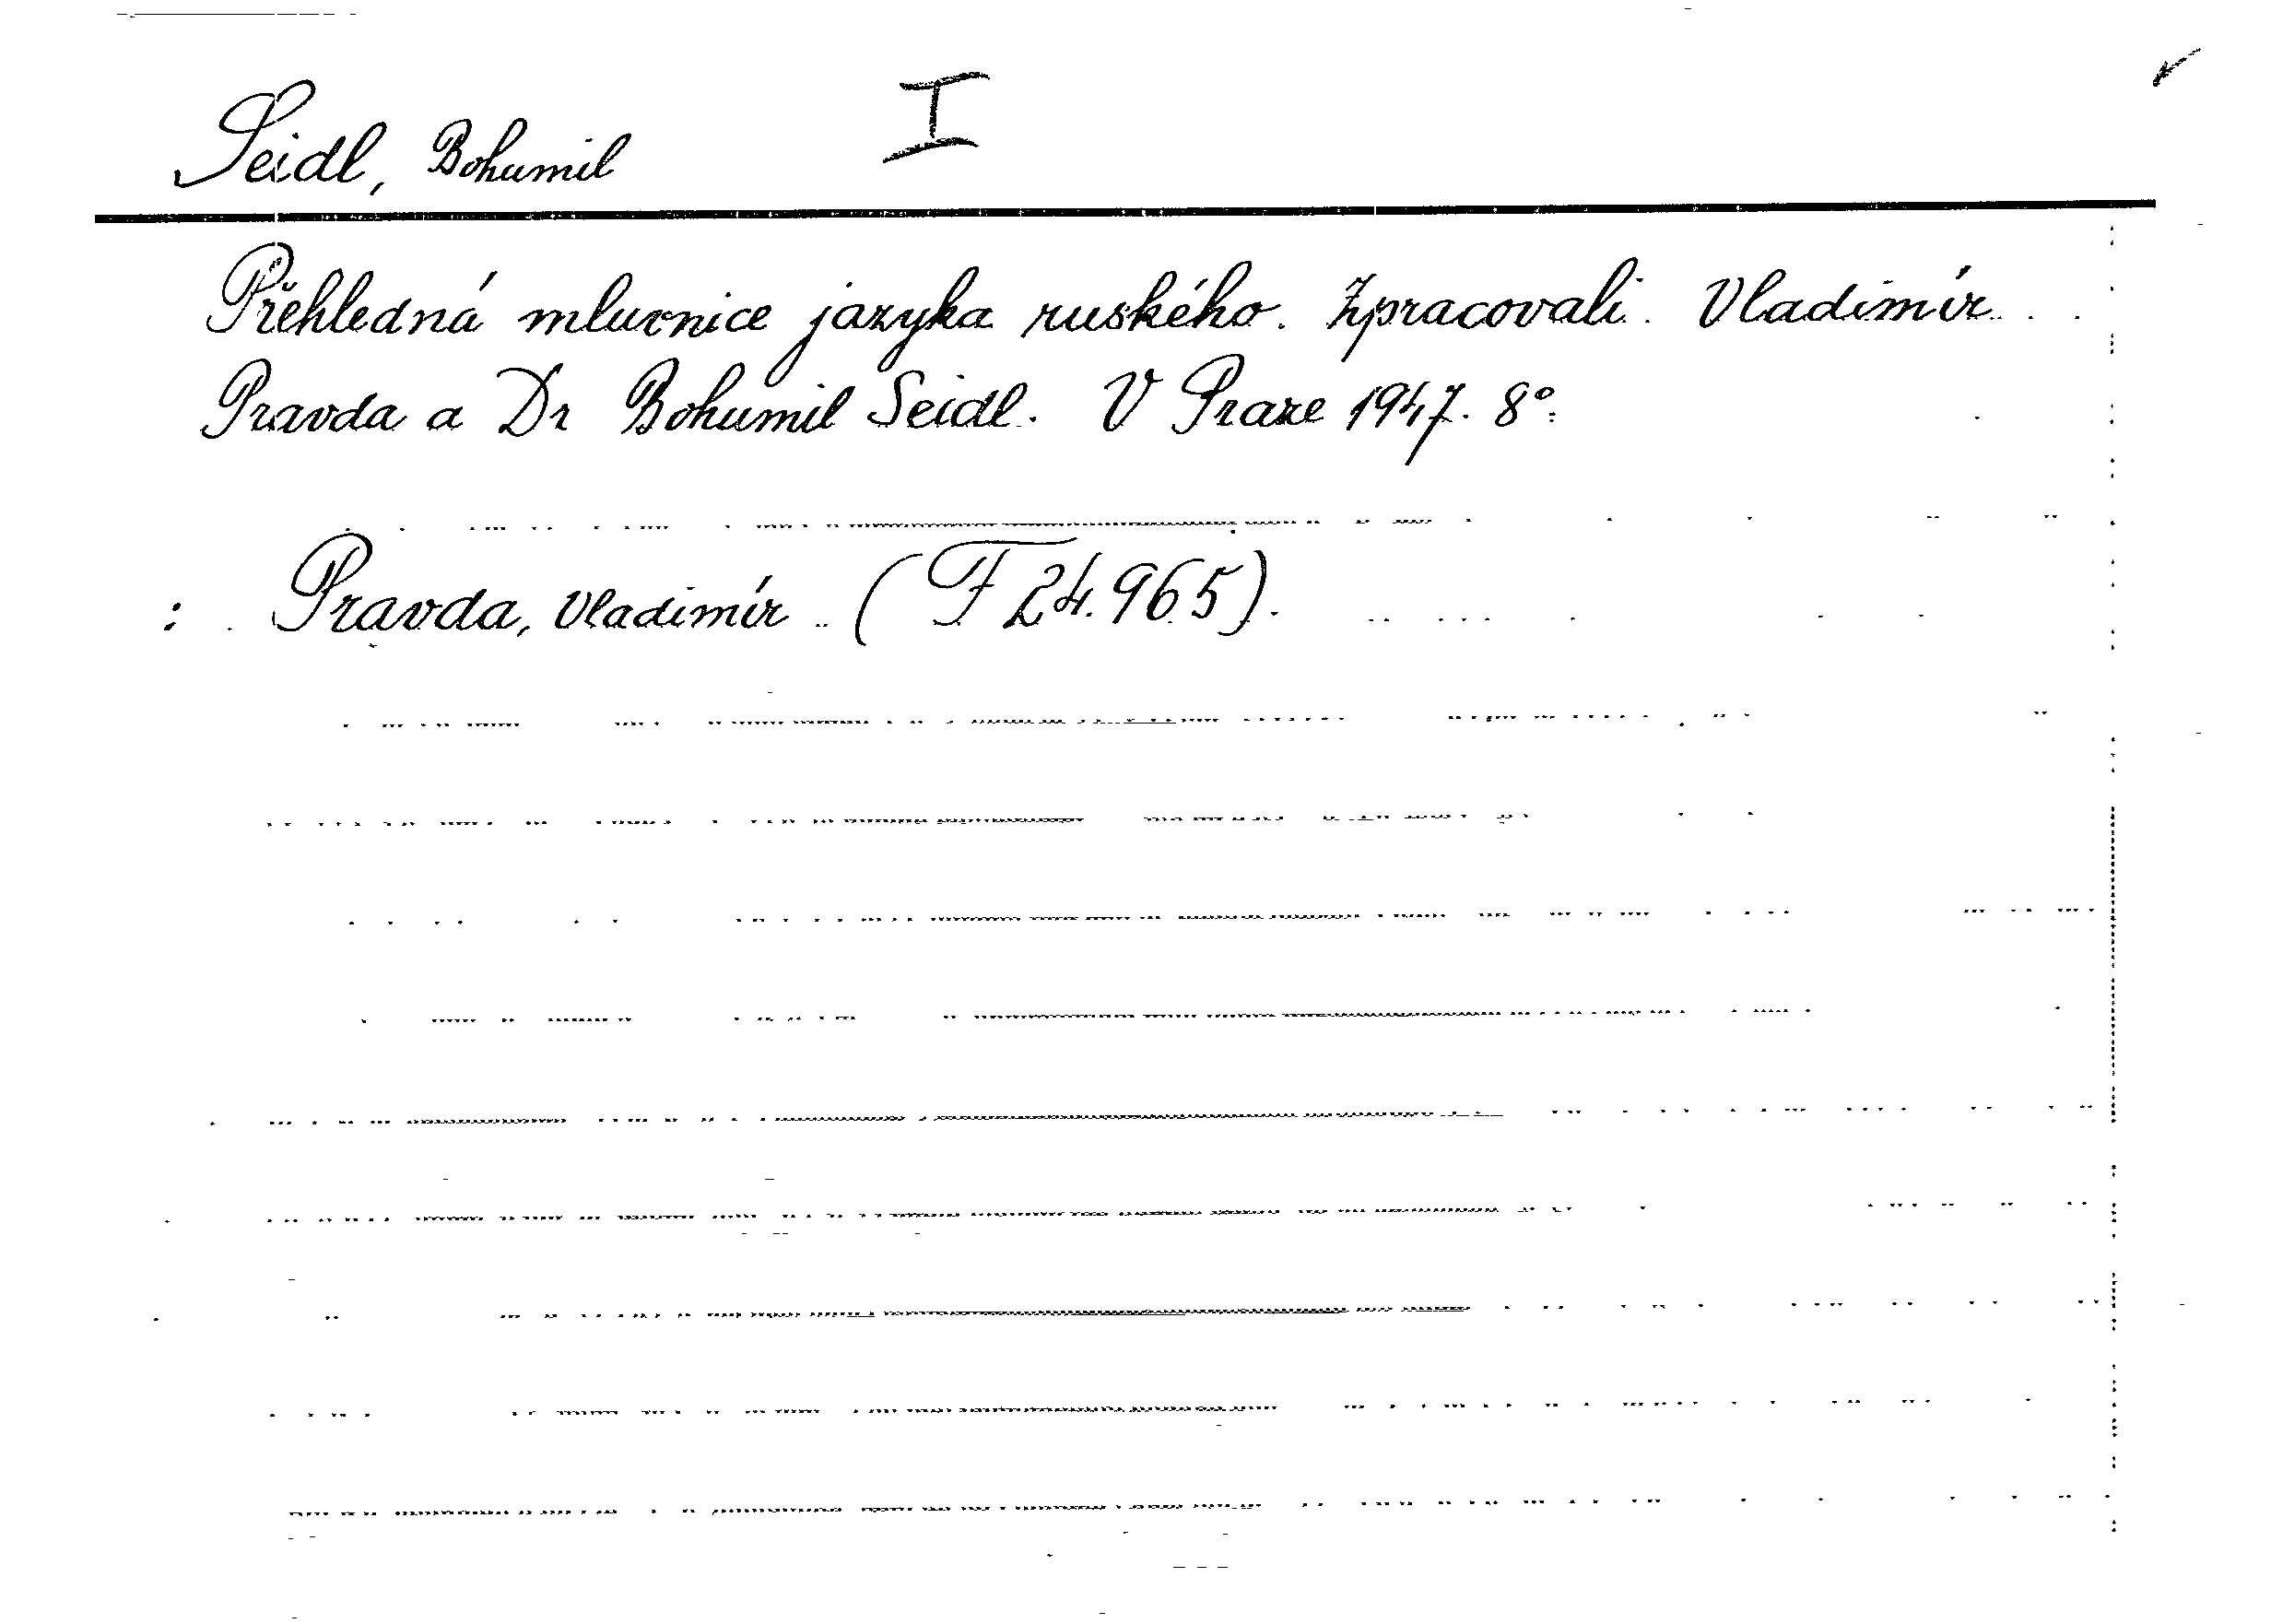 Seidl, Bohumil I
Přehledná mluvnice jazyka ruského. Zpracovali Vladimír
Pravda a Dr Bohumil Seidl. V Praze 1947. 8°.
: Pravda, Vladimír (F 24.965).